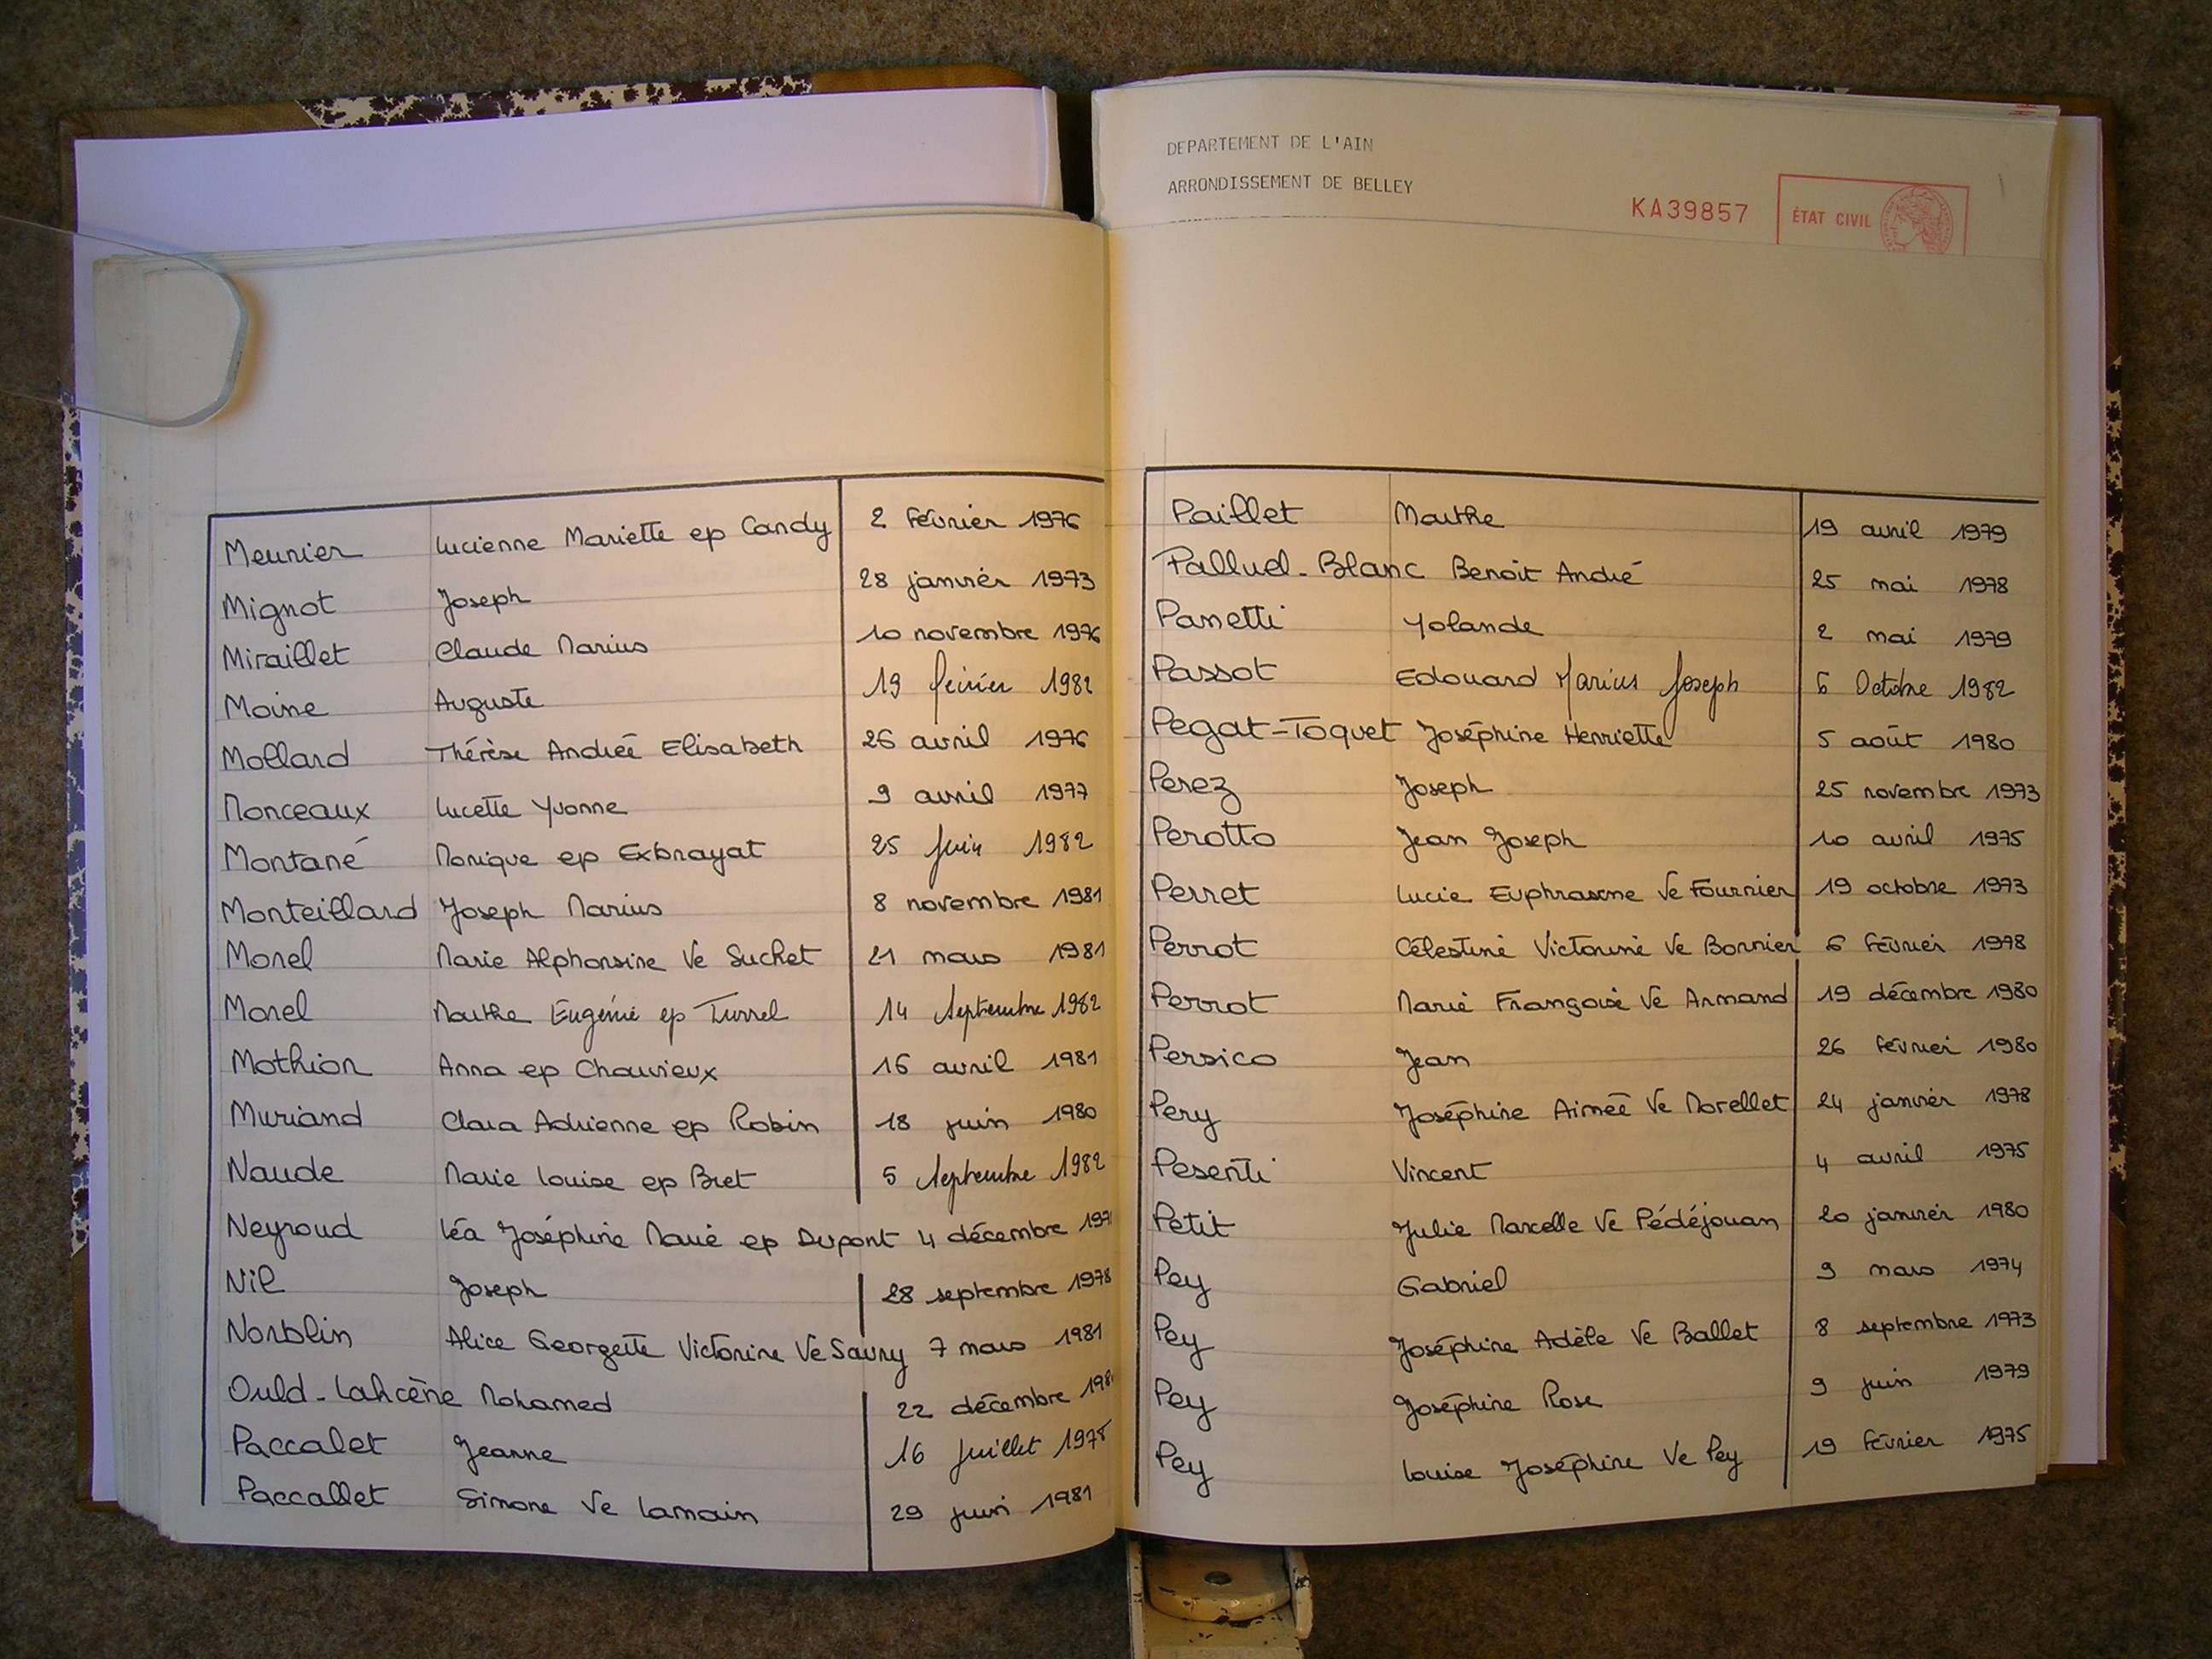 Meunier Lucienne Mariette ep Candy 2 février 1976
Mignot Joseph 28 janvier 1973
Miraillet Claude Marius 10 novembre 1976
Moine Auguste 19 février 1982
Mollard Thérèse Andrée Elisabeth 26 avril 1976
Monceaux Lucette Yvonne 9 avril 1977
Montané Monique ep Exbrayat 25 Juin 1982
Monteillard Joseph Marius 8 novembre 1981
Morel Marie Alphonsine Ve Suchet 21 mars 1981
Morel Marthe Eugénie ep Turrel 14 Septembre 1982
Mothion Anna ep Chauvieux 16 avril 1981
Muriand Clara Adrienne ep Robin 18 juin 1980
Naude Marie Louise ep Bret 5 Septembre 1982
Neyroud Léa Joséphine Marie ep Dupont 4 décembre
Nil Joseph 28 septembre 1978
Norblin Alice Georgette Victorine Ve Saury 7 mars 1981
Ould-Lahcène Mohamed 22 décembre
Paccalet Jeanne 16 Juillet 1978
Paccallet Simone Ve Lamain 29 juin 1981
DEPARTEMENT DE L'AIN
ARRONDISSEMENT DE BELLEY
KA39857 ÉTAT CIVIL
Paillet Marthe 19 avril 1979
Palluel-Blanc Benoit André 25 mai 1978
Panetti Yolande 2 mai 1979
Passot Edouard Marius Joseph 6 Octobre 1982
Pegat-Toquet Joséphine Henriette 5 août 1980
Perez Joseph 25 novembre 1973
Perotto Jean Joseph 10 avril 1975
Perret Lucie Ve Fournier 19 octobre 1973
Perrot Célestine Victorine Ve Bornier 6 février 1978
Perrot Marie Françoise Ve Armand 19 décembre 1980
Persico Jean 26 février 1980
Pery Joséphine Aimée Ve Morellet 24 janvier 1978
Pesenti Vincent 4 avril 1975
Petit Julie Marcelle Ve Pédéjouan 20 janvier 1980
Pey Gabriel 9 mars 1974
Pey Joséphine Adèle Ve Ballet 8 septembre 1973
Pey Joséphine Rose 9 juin 1979
Pey Louise Joséphine Ve Pey 19 février 1975